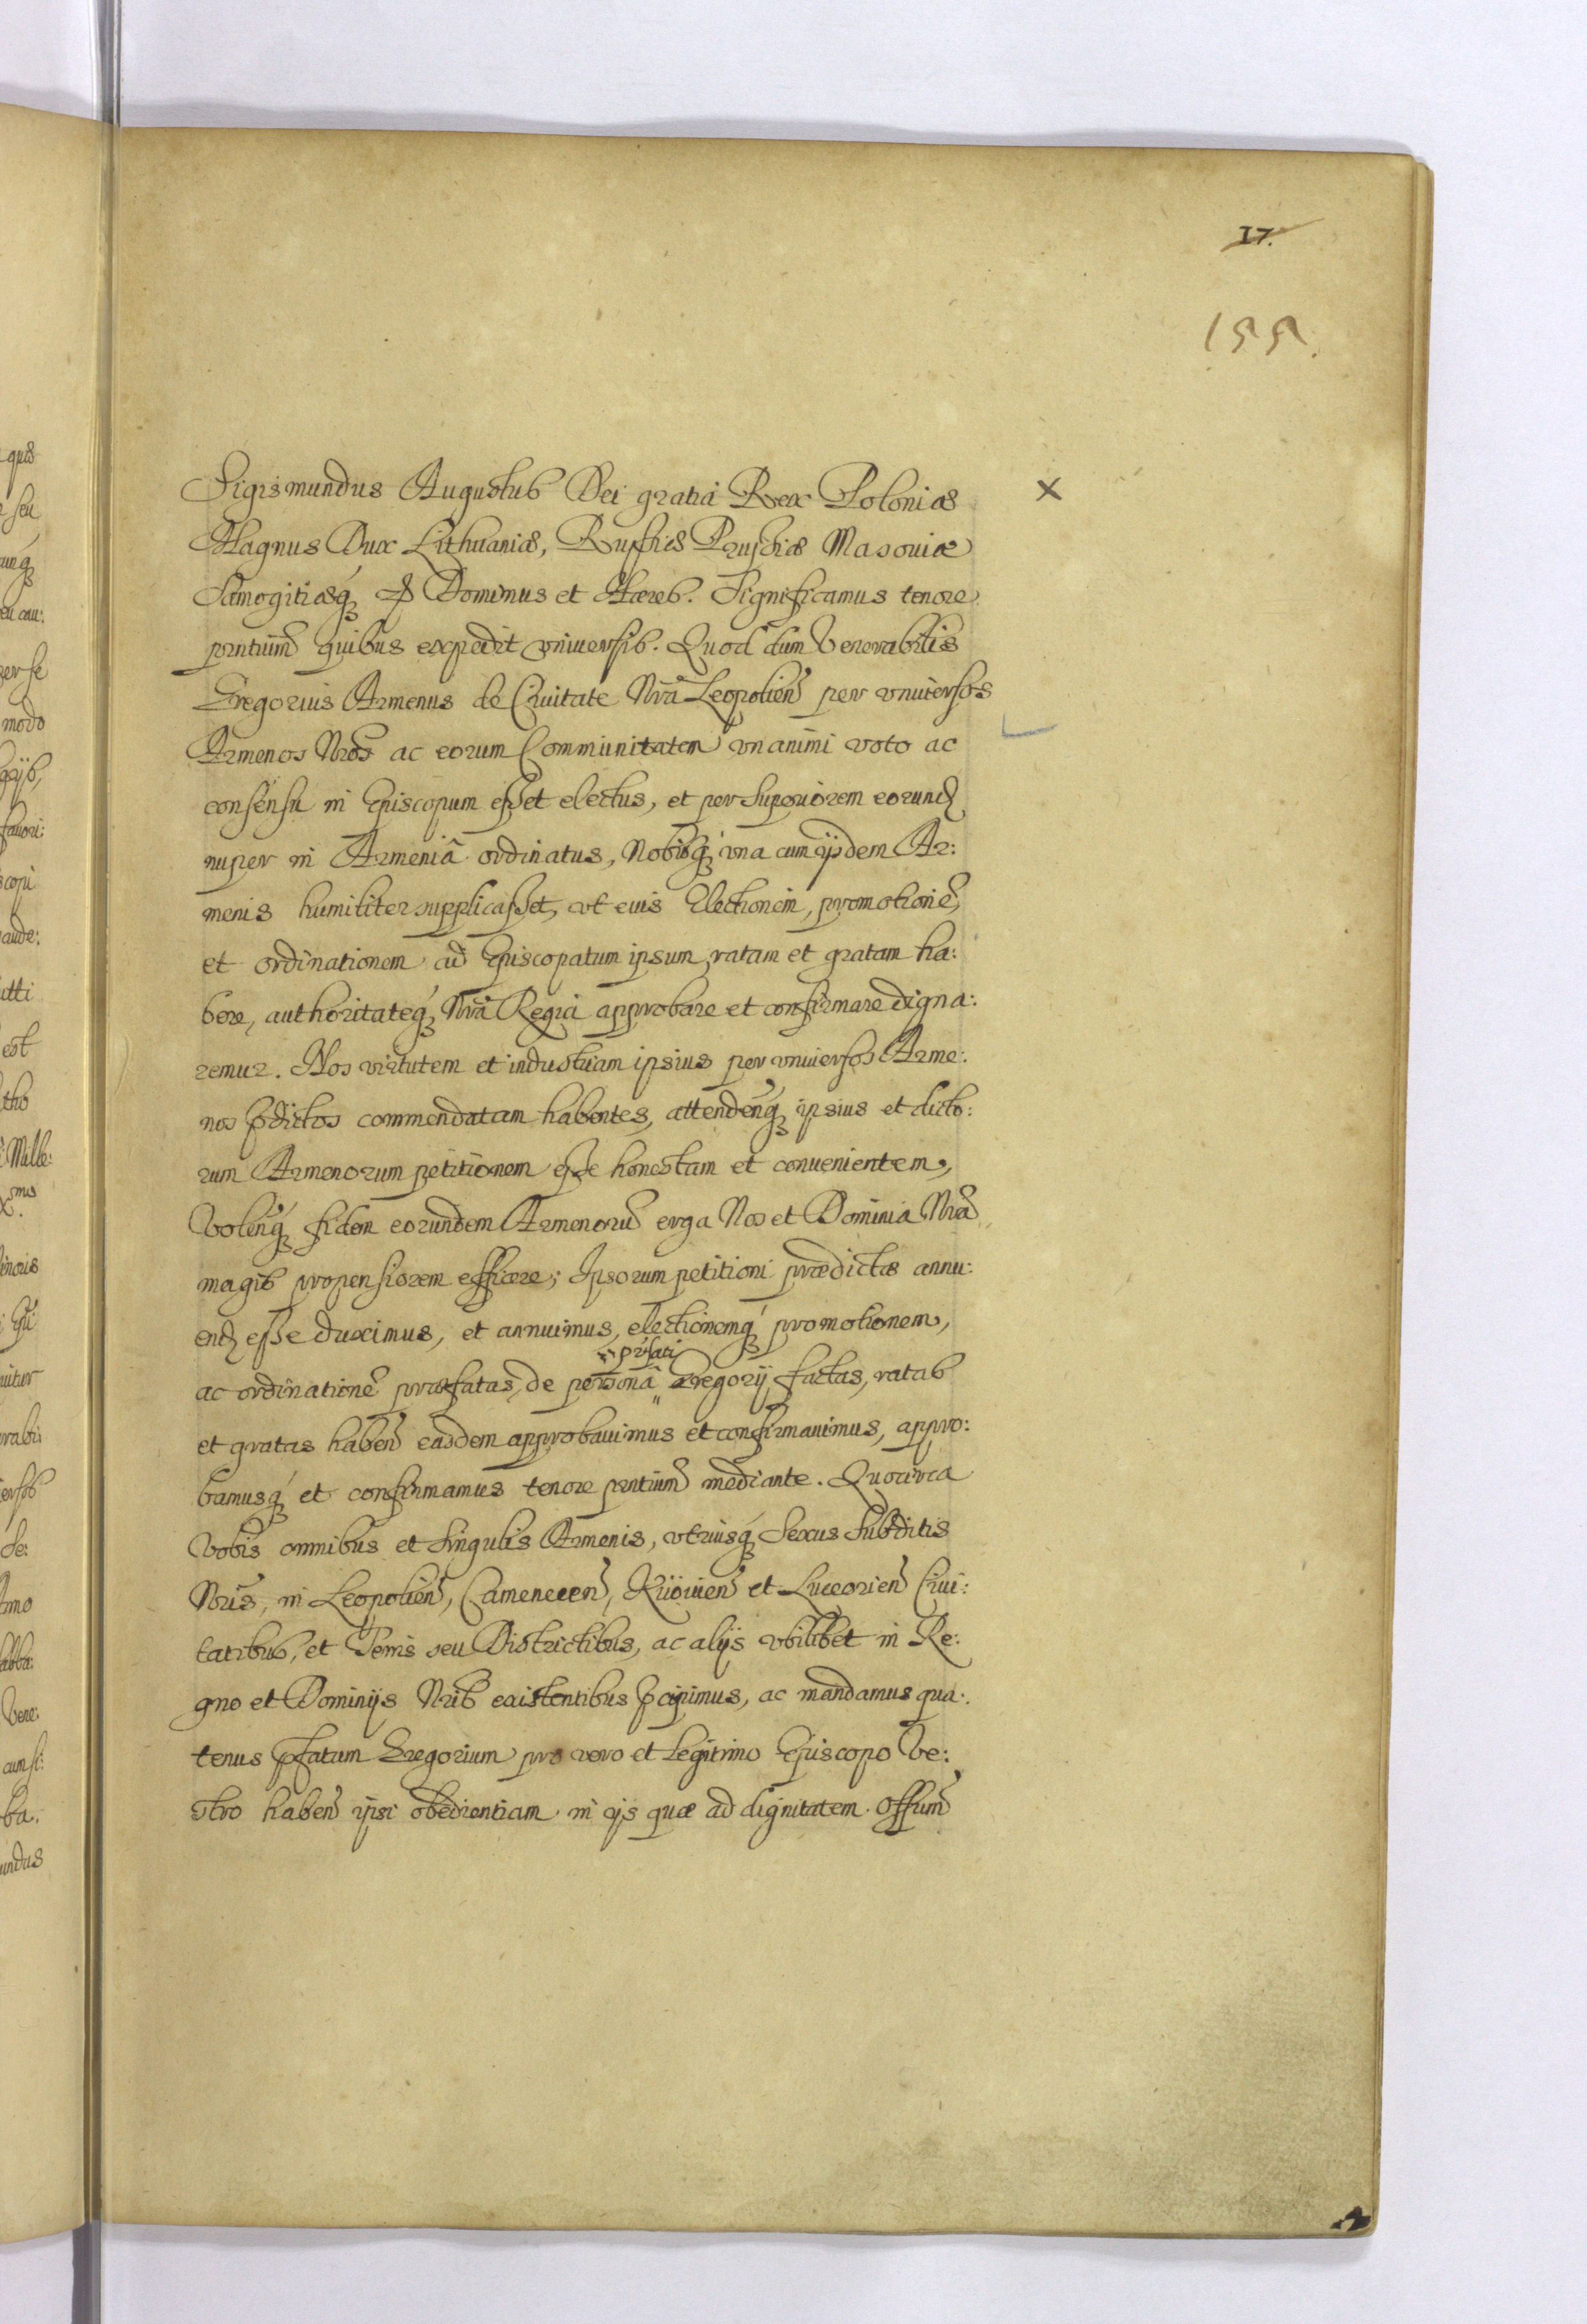 17.
155.
Sigismundus Augustus Dei gratia Rex Poloniæ
Magnus Dux Lithuaniæ, Russiæ Prussiæ Masoviæ
Samogitiæq́ꝫ Dominus et Hæres. Significamus tenore
pntium̃ quibus expedit vniversis. Quod dum Venerabilis
Gregorius Armenus de Civitate Nrã Leopolien̄ per vniversos
Armenos Nrõs ac eorum Communitatem vnanimi voto ac
consensu in Episcopum esset electus, et per Superiorem eorund
nuper in Armeniâ ordinatus, Nobisq́ꝫ vna cum ijsdem Ar:
menis humiliter supplicasset, vt eius Electionem, promotionẽ,
et ordinationem ad Episcopatum ipsum ratam et gratam ha:
bere, authoritateq́ꝫ Nrã Regia approbare et confirmare digna:
remur. Nos virtutem et industriam ipsius per vniuersos Arme:
nos p̃dictos commendatam habentes, attenden̄q́ꝫ ipsius et dicto:
rum Armenorum petitionem esse honestam et conuenientem,
Volen̄q́ꝫ fidem eorundem Armenorũ erga Nos et Dominia Nrã
magis propensiorem efficere; Ipsorum petitioni prædictæ annu:
end esse duximus, et annuimus, electionemq́ꝫ promotionem,
præfati
ac ordinationẽ præfatas, de personâ Gregorij factas, ratas
et gratas haben̄ easdem approbauimus et confirmauimus, appro:
bamusq́ꝫ et confirmamus tenore pntium̃ mediante. Quocirca
Vobis omnibus et singulis Armenis, vtriusq́ꝫ Sexus Subditis
Nrĩs, in Leopolien̄, Camenecen̄, Kijouien̄ et Luceorien̄ Ciui:
tatibus, et Terris seu Districtibus, ac alijs vbilibet in Re:
gno et Dominijs Nrĩs existentibus p̃cipimus, ac mandamus qua:
tenus p̃fatum Gregorium pro vero et legitimo Episcopo Ve:
stro haben̄ ipsi obedientiam in ijs quæ ad dignitatem Offium̃